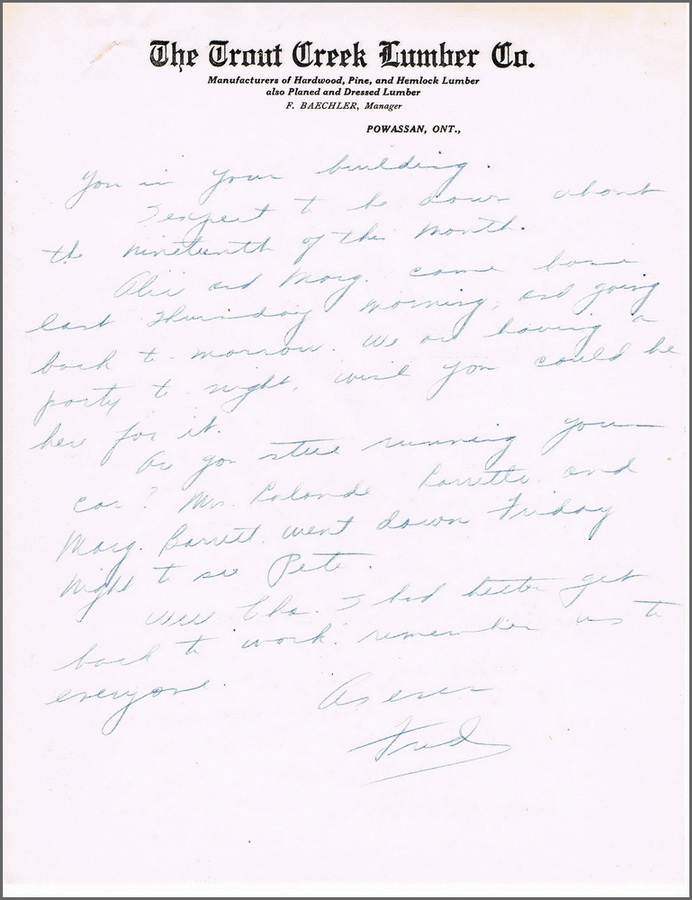 The Trout Creek Lumber Co.
Manufacturers of Hardwood, Pine, and Hemlock Lumber
also Planed and Dressed Lumber
F. BAECHLER, Manager
POWASSAN, ONT.,
you in your building.
I expect to be down about
the nineteenth of the month.
and Marg. came home
last Thursday morning, and going
back to-morrow. We are having a
party to-night, wish you could be
here for it.
Are you still running your
car? Mr. and
Marg. Barrett went down Friday
Night to see Pete.
Well Cha. I had better get
back to work. remember us to
everyone.
As ever
Fred